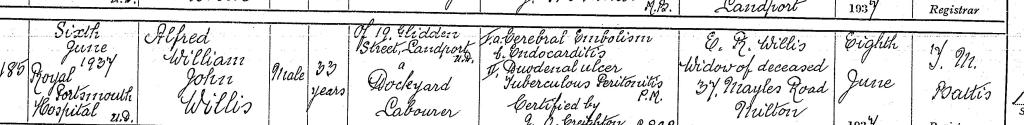 U.D.
M.B.
Landport
1937
Registrar
185
Sixth
June
1937
Royal
Portsmouth
Hospital U.D.
Alfred
William
John
Willis
Male
33
years
Of 19, Glidden
Street, Landport
U.D.
a
Dockyard
Labourer
I. a. Cerebral Embolism
b. Endocarditis
II. Duodenal ulcer
Tuberculous Peritonitis
P.M.
Certified by
Creighton
E. R. Willis
Widow of deceased
37, Mayles Road
Milton
Eighth
June
M.
Battis
1937